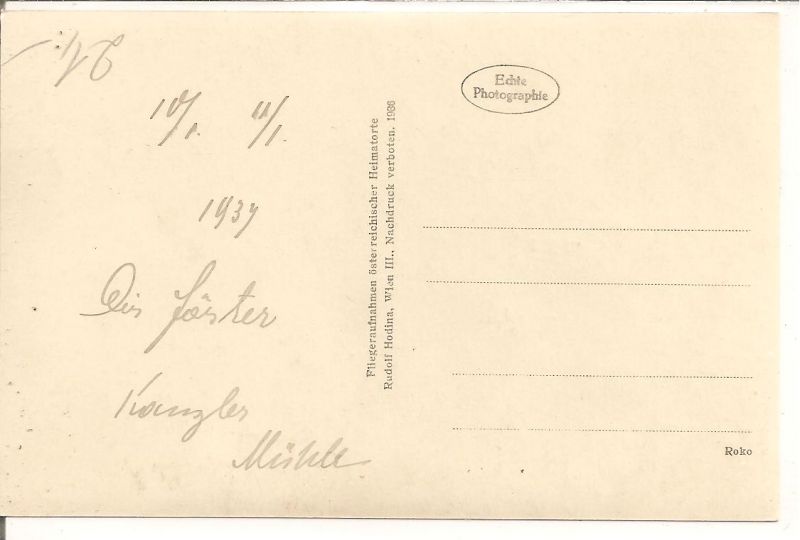 10/1. 11/1.
1937
Die Förster
Kanzler
Mühle
Fliegeraufnahmen österreichischer Heimatorte
Rudolf Hodina, Wien III., Nachdruck verboten. 1936
Echte
Photographie
Roko